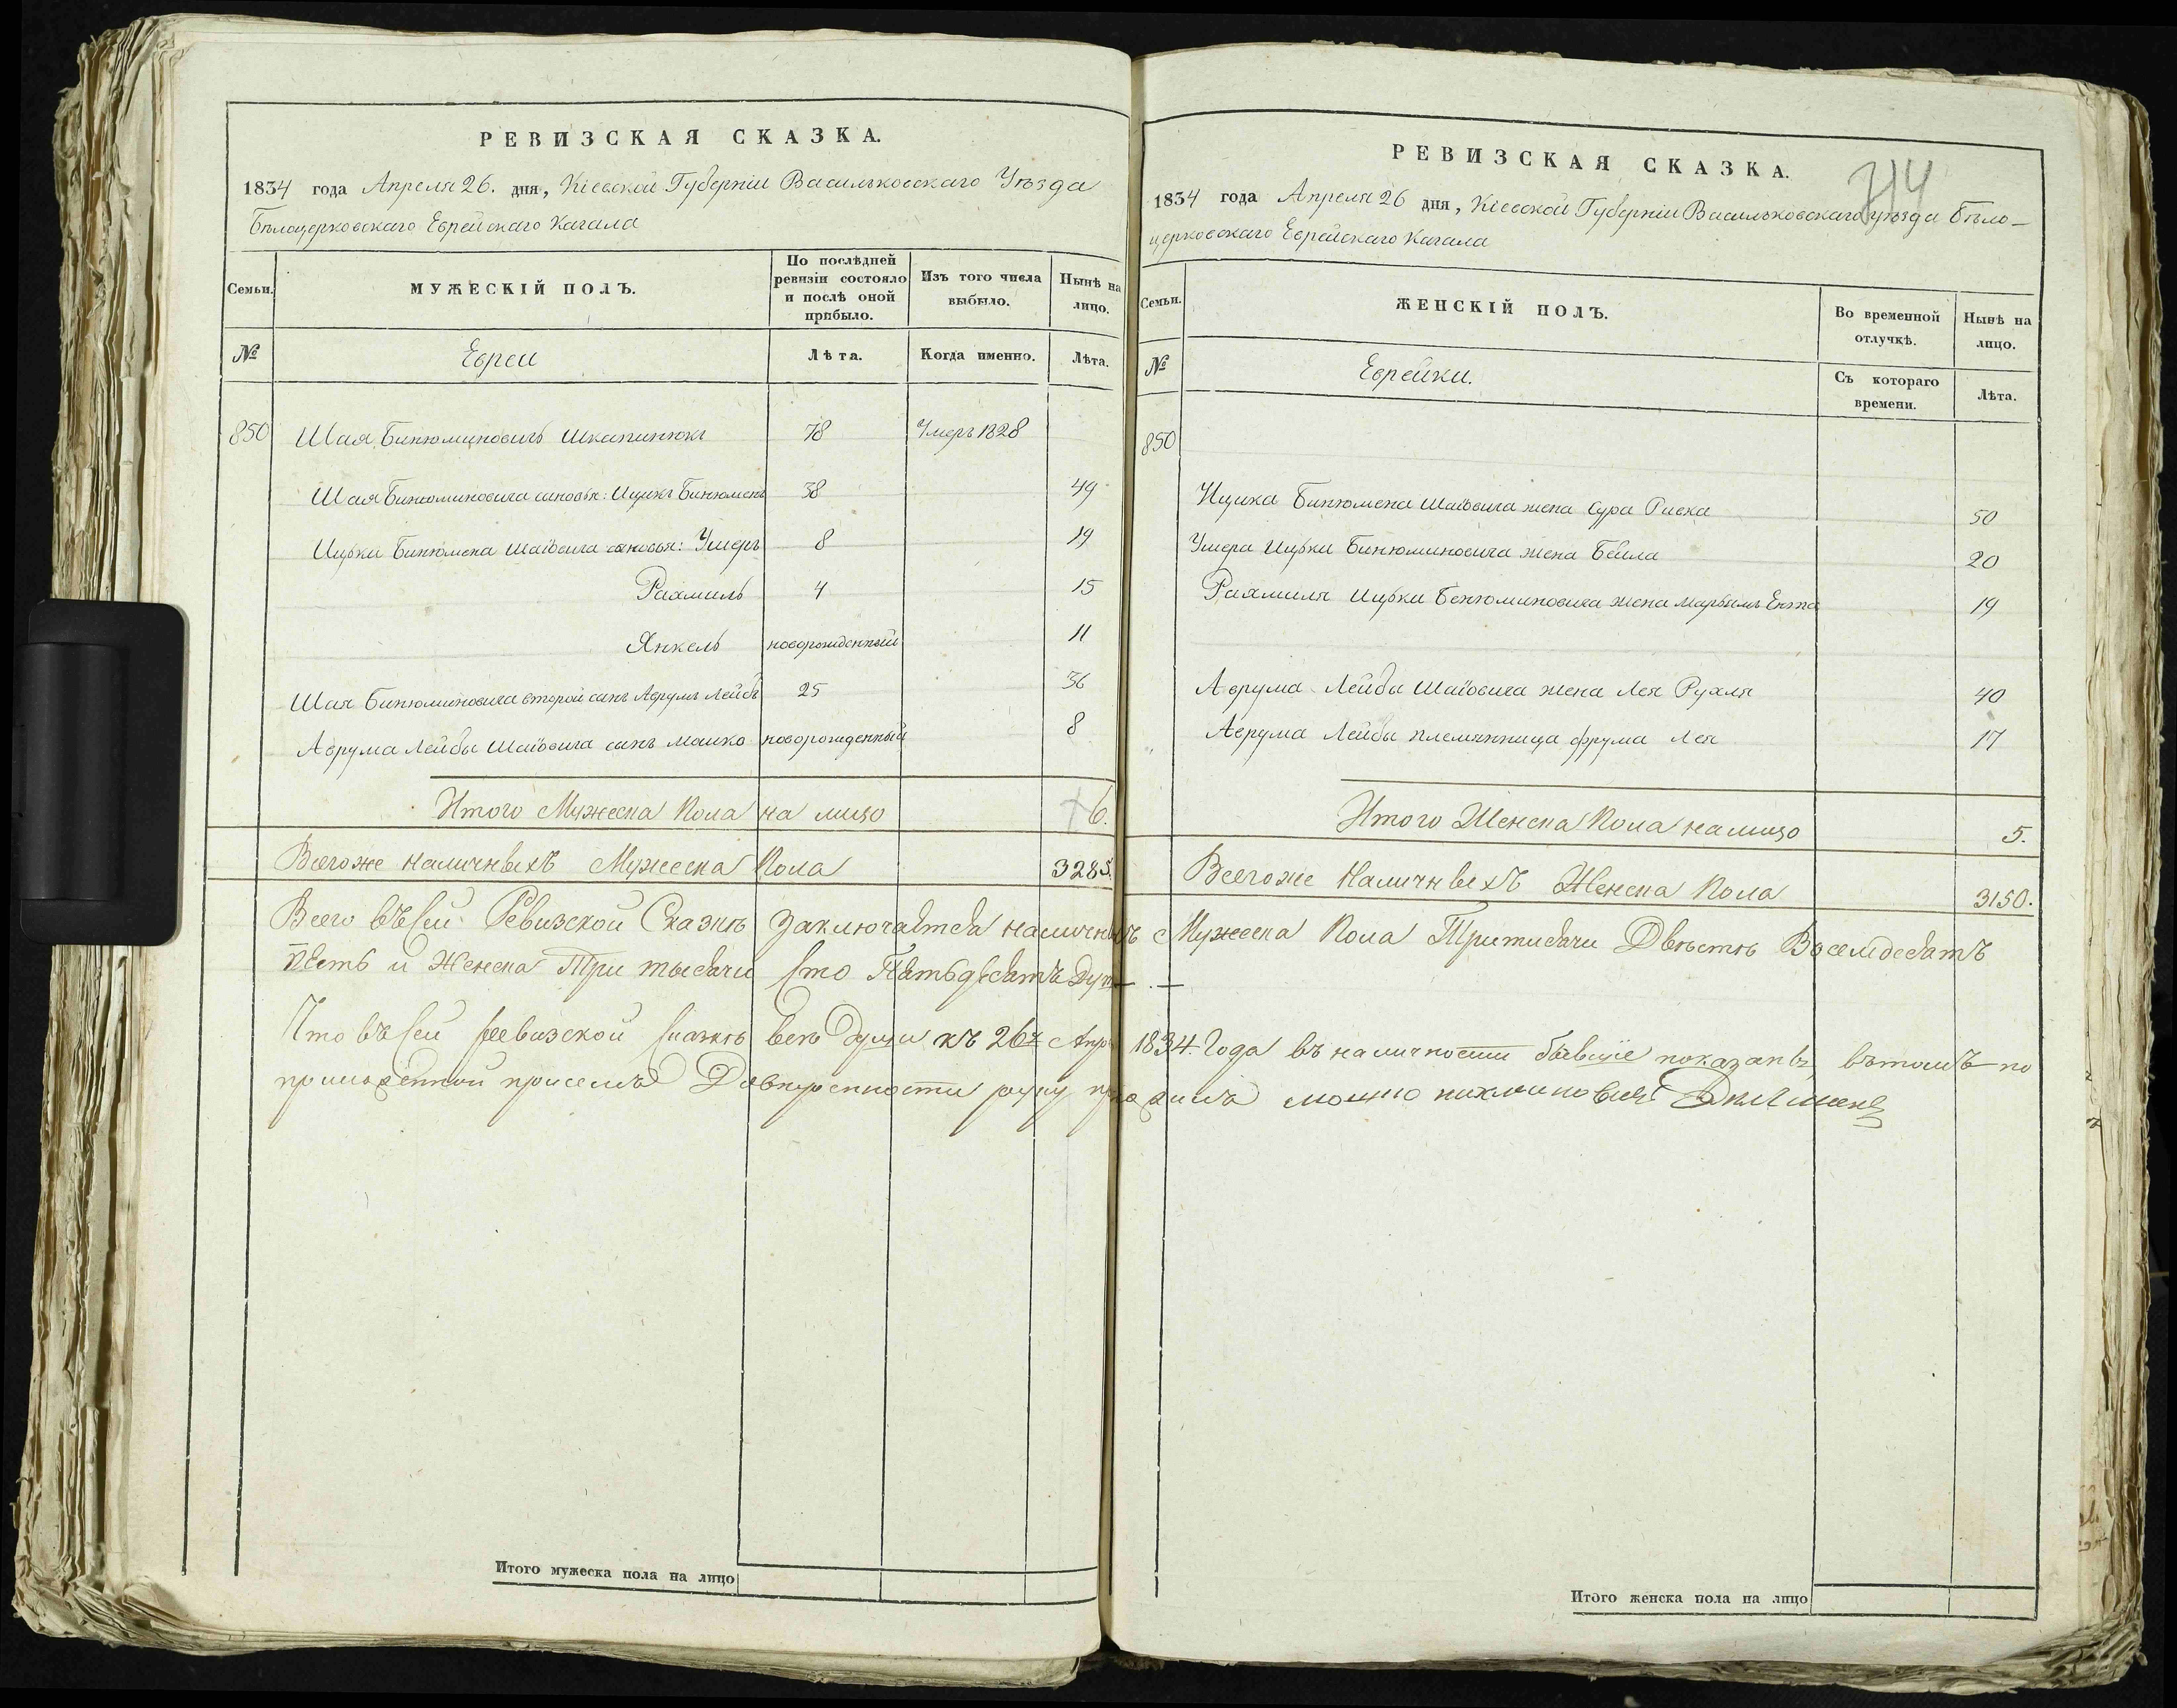 РЕВИЗСКАЯ СКАЗКА.
1834 года Апреля 26. дня, Кіевской Губерніи Васильковскаго Уѣзда
Бѣлоцерковскаго Еврейскаго Кагала
Семьи.
МУЖЕСКІЙ ПОЛЪ.
По послѣдней ревизіи состояло и послѣ оной прибыло.
Изъ того числа выбыло.
Нынѣ на лицо.
№
Евреи
Лѣта.
Когда именно.
Лѣта.
850 Шая Бинюминовичъ Шкапинюкъ 78 Умеръ 1828
Шая Бинюминовича сыновья: Ицикъ Бинюменъ 38 49
Ицьки Бинюмена Шаіовича сыновья: Умеръ 8 19
Рахмиль 4 15
Янкель новорожденный 11
Шая Бинюминовича второй сынъ Аврумъ Лейба 25 36
Аврума Лейбы Шаіовича сынъ Машко новорожденный 8
Итого Мужеска Пола на лицо 6.
Всего же наличныхъ Мужеска Пола 3285.
РЕВИЗСКАЯ СКАЗКА.
714
1834 года Апреля 26 дня, Кіевской Губерніи Васильковскаго уѣзда Бѣло-
церковскаго Еврейскаго Кагала
Семьи.
ЖЕНСКІЙ ПОЛЪ.
Во временной отлучкѣ.
Нынѣ на лицо.
№
Еврейки.
Съ котораго времени.
Лѣта.
850
Ицика Бинюмена Шаіовича жена Сура Ривка 50
Умера Ицьки Бинюминовича жена Бейла 20
Рахмиля Ицьки Бенюминовича жена Марьямъ Ента 19
Аврума Лейбы Шаіовича жена Лея Рухля 40
Аврума Лейбы племянница Фрума Лея 17
Итого Женска Пола на лицо 5.
Всего же Наличныхъ Женска Пола 3150.
Всего въ сей Ревизской Сказкѣ заключается наличныхъ Мужеска Пола Три тисячи Двѣстѣ Восемдесятъ
пять и Женска Три тысячи сто Пятьдесятъ душъ.
Что въ сей ревизской сказкѣ всѣ души къ 26ч Апр 1834. Года въ наличности бывшіе показаны, въ томъ по
приложенной при семъ Довѣренности руку приложилъ Мошко
Итого мужеска пола на лицо
Итого женска пола на лицо